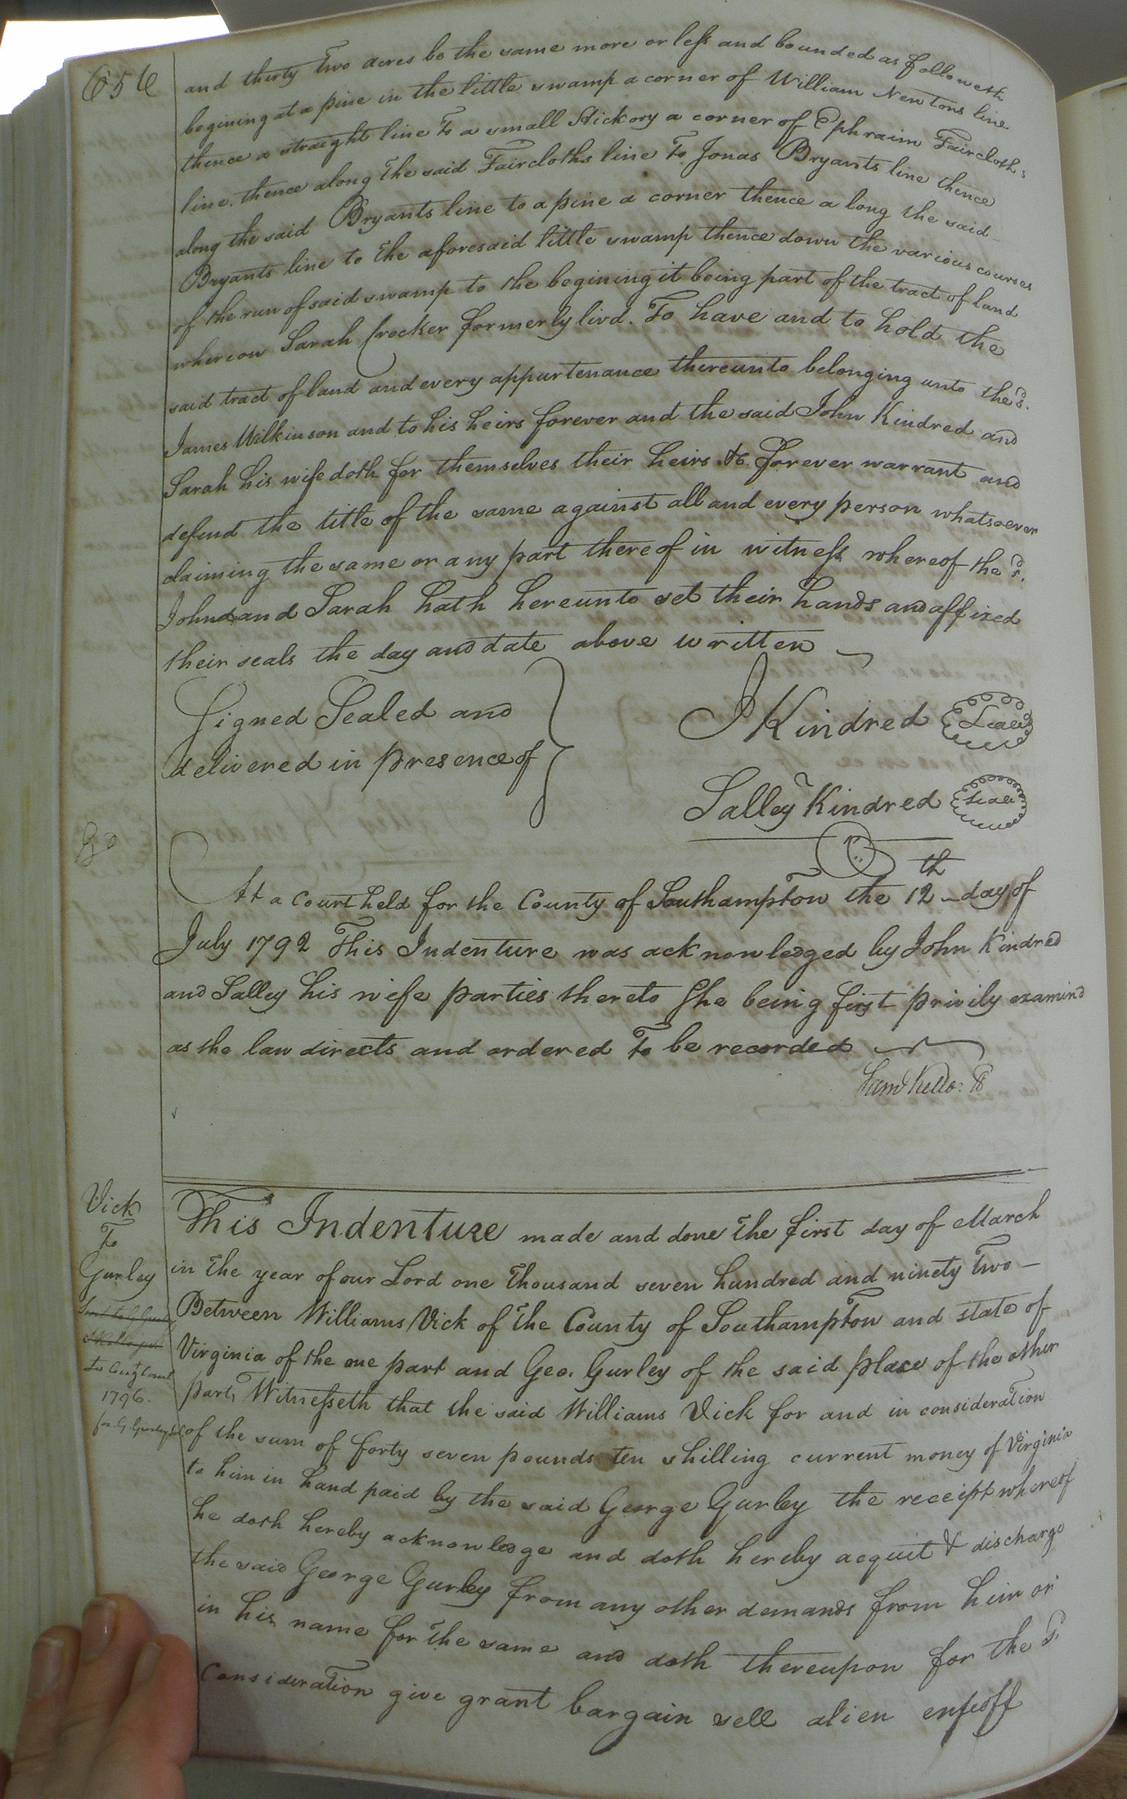 656
and thirty two acres be the same more or less and bounded as followeth
begining at a pine in the little swamp a corner of William Newtons line
thence a straight line To a small Hickory a corner of Ephraim Faircloths
line, thence along the said Faircloths line To Jonas Bryants line thence
along the said Bryants line to a pine a corner thence a long the said
Bryants line to the aforesaid little swamp thence down the various courses
of the run of said swamp to the begining it being part of the tract of land
whereon Sarah Crocker formerly livd. To have and to hold the
said tract of land and every appurtenance thereunto belonging unto the sd.
James Wilkinson and to his heirs forever and the said John Kindred and
Sarah his wife doth for themselves their heirs &c. forever warrant and
defend the title of the same against all and every person whatsoever
claiming the same or any part thereof in witness whereof the sd.
John and Sarah hath hereunto set their hands and affixed
their seals the day and date above written
Signed Sealed and
delivered in presence of
J Kindred Seal
Salley Kindred Seal
At a Court held for the County of Southampton the 12th day of
July 1792 This Indenture was acknowledged by John Kindred
and Salley his wife parties thereto She being first privily examind
as the law directs and ordered To be recorded
Vick
To
Gurley
1796.
This Indenture made and done the first day of March
in the year of our Lord one thousand seven hundred and ninety two
Between Williams Vick of the County of Southampton and state of
Virginia of the one part and Geo. Gurley of the said place of the other
part, Witnesseth that the said Williams Vick for and in consideration
of the sum of forty seven pounds ten shilling current money of Virginia
to him in hand paid by the said George Gurley the receipt whereof
he doth hereby acknowledge and doth hereby acquit & discharge
the said George Gurley from any other demands from him or
in his name for the same and doth thereupon for the sd.
Consideration give grant bargain sell alien enfeoff